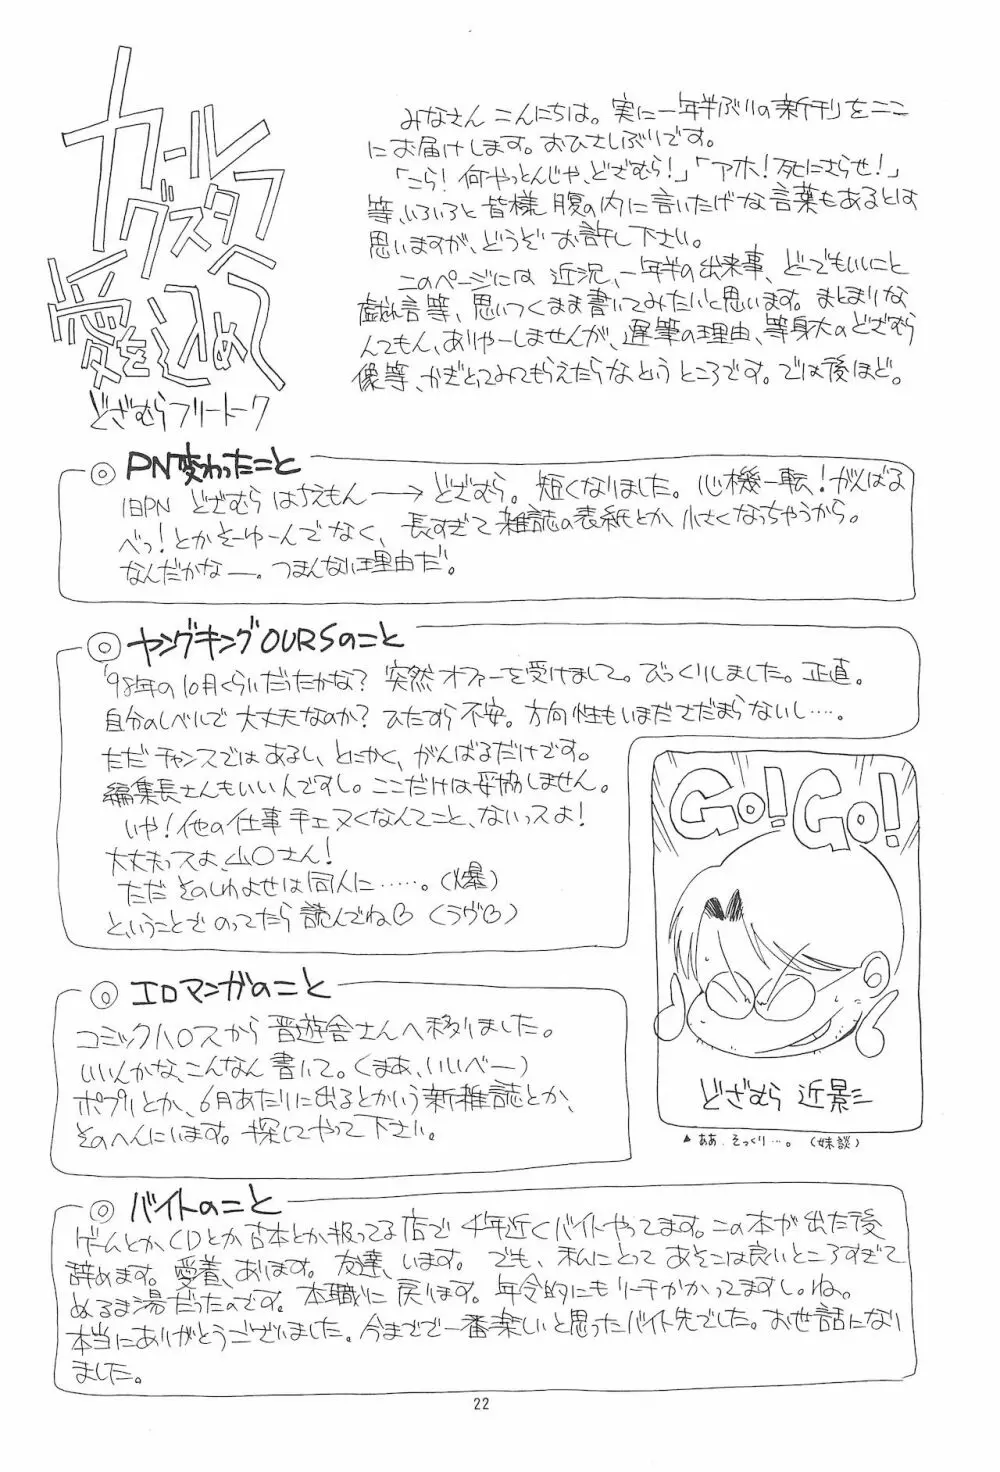 カールグスタフ
愛を込めて
どざむらフリートーク
みなさんこんにちは。実に一年半ぶりの新刊をここ
にお届けします。おひさしぶりです。
「こら!何やっとんじゃ、どざむら!」「アホ!死にさらせ!」
等、いろいろと皆様腹の内に言いたげな言葉もあるとは
思いますが、どうぞお許し下さい。
このページには近況、一年半の出来事、どーでもいいこと
戯れ言等、思いつくまま書いてみたいと思います。まとまりな
んてもん、ありゃーしませんが、遅筆の理由、等身大のどざむら
像等、かぎとってみてもらえたらなというところです。では後ほど。
◎ PN変わったこと
旧PN どざむらはちえもん → どざむら。短くなりました。心機一転!がんばる
べっ!とかそーゆーんでなく、長すぎて雑誌の表紙とか小さくなっちゃうから。
なんだかなー。つまんない理由だ。
◎ ヤングキングOURSのこと
'98年の10月くらいだったかな?突然オファーを受けまして。びっくりしました。正直。
自分のレベルで大丈夫なのか?ひたすら不安。方向性もいまださだまらないし…。
ただチャンスではあるし、とにかく、がんばるだけです。
編集長さんもいい人ですし。ここだけは妥協しません。
いや!他の仕事手ェヌくなんてこと、ないっスよ!
大丈夫っスよ、山○さん!
ただそのしわよせは同人に……。(爆)
ということでのってたら読んでね♡(ラヴ♡)
GO!GO!
どざむら 近影
▲ああ、そっくり…。(妹談)
◎ エロマンガのこと
コミックハ○スから晋遊舎さんへ移りました。
いいんかな、こんなん書いて。(まあ、いいべー)
ポプリとか、6月あたりに出るとかいう新雑誌とか、
そのへんにいます。探してやって下さい。
◎ バイトのこと
ゲームとかCDとか古本とか扱ってる店で4年近くバイトやってます。この本が出た後
辞めます。愛着、あります。友達、います。でも、私にとってあそこは良いところすぎて
ぬるま湯だったのです。本職に戻ります。年令的にもリーチかかってますし。ね。
本当にありがとうございました。今までで一番楽しいと思ったバイト先でした。お世話になり
ました。
22